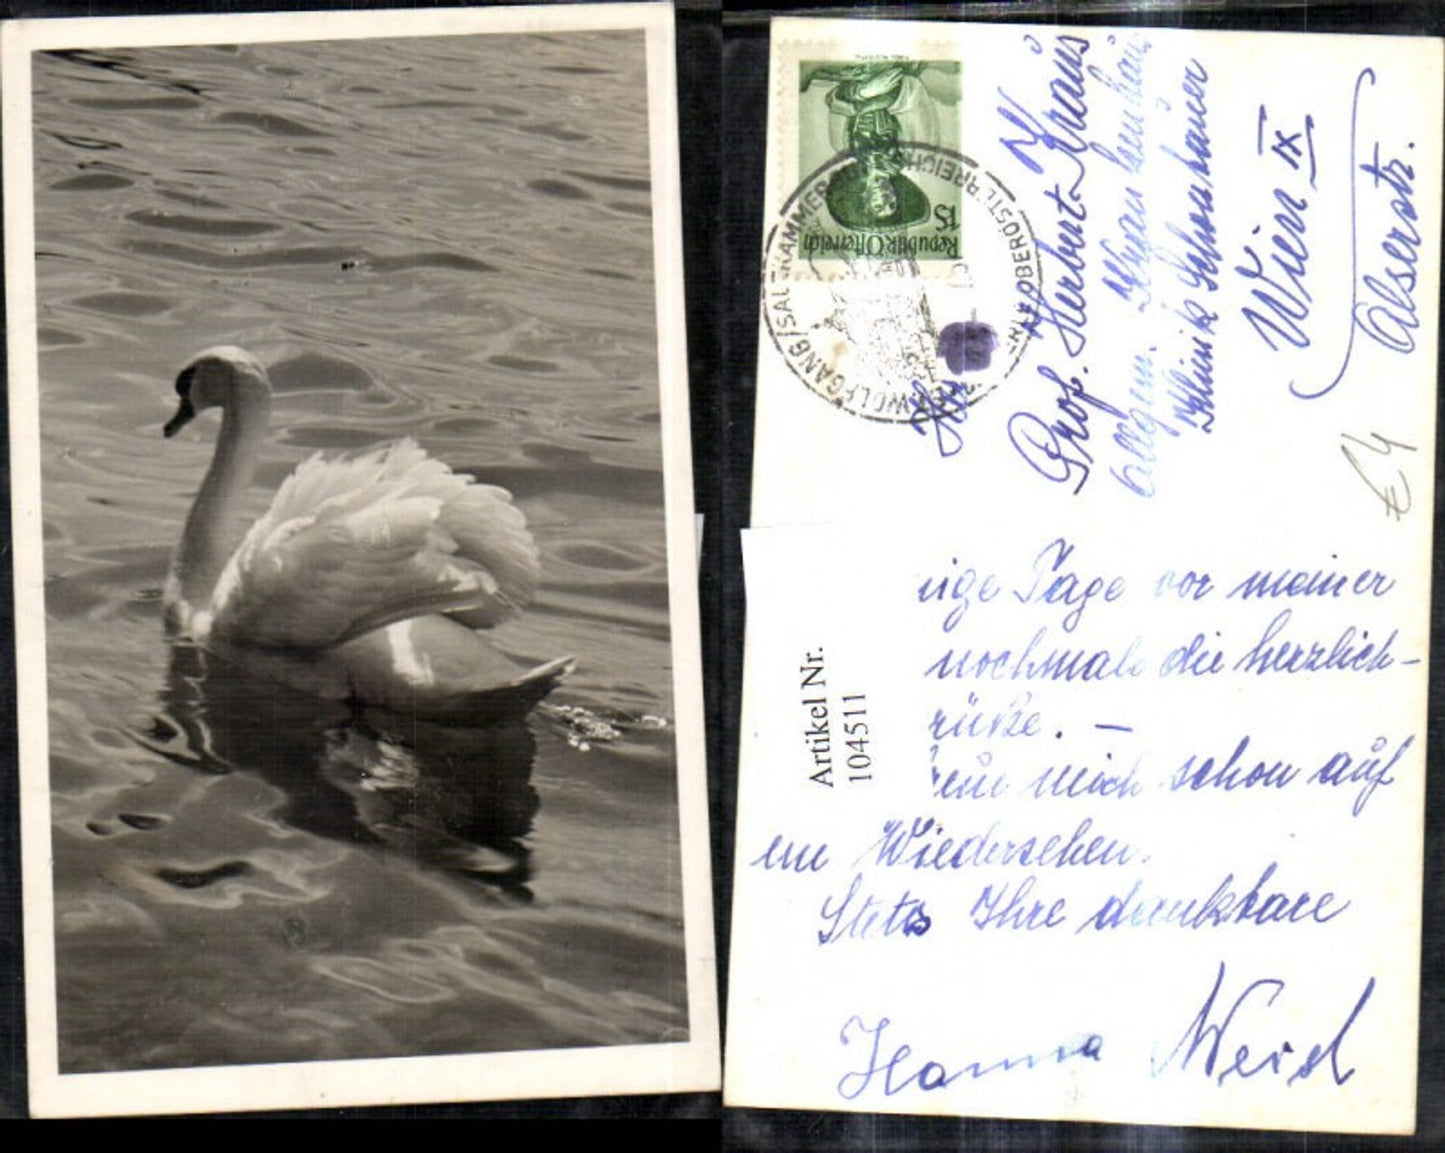 Republik Österreich
1S
WOLFGANG/SALZKAMMERGUT
OBERÖSTERREICH
Prof. Herbert Kraus
Allgem. Krankenhaus
Klinik Schönbauer
Wien IX
Alserstr.
€ 4
nige Tage vor meiner
nochmals die herzlich-
rüße. —
mich schon auf
ein Wiedersehen.
Stets Ihre dankbare
Hanna Weid
Artikel Nr.
104511